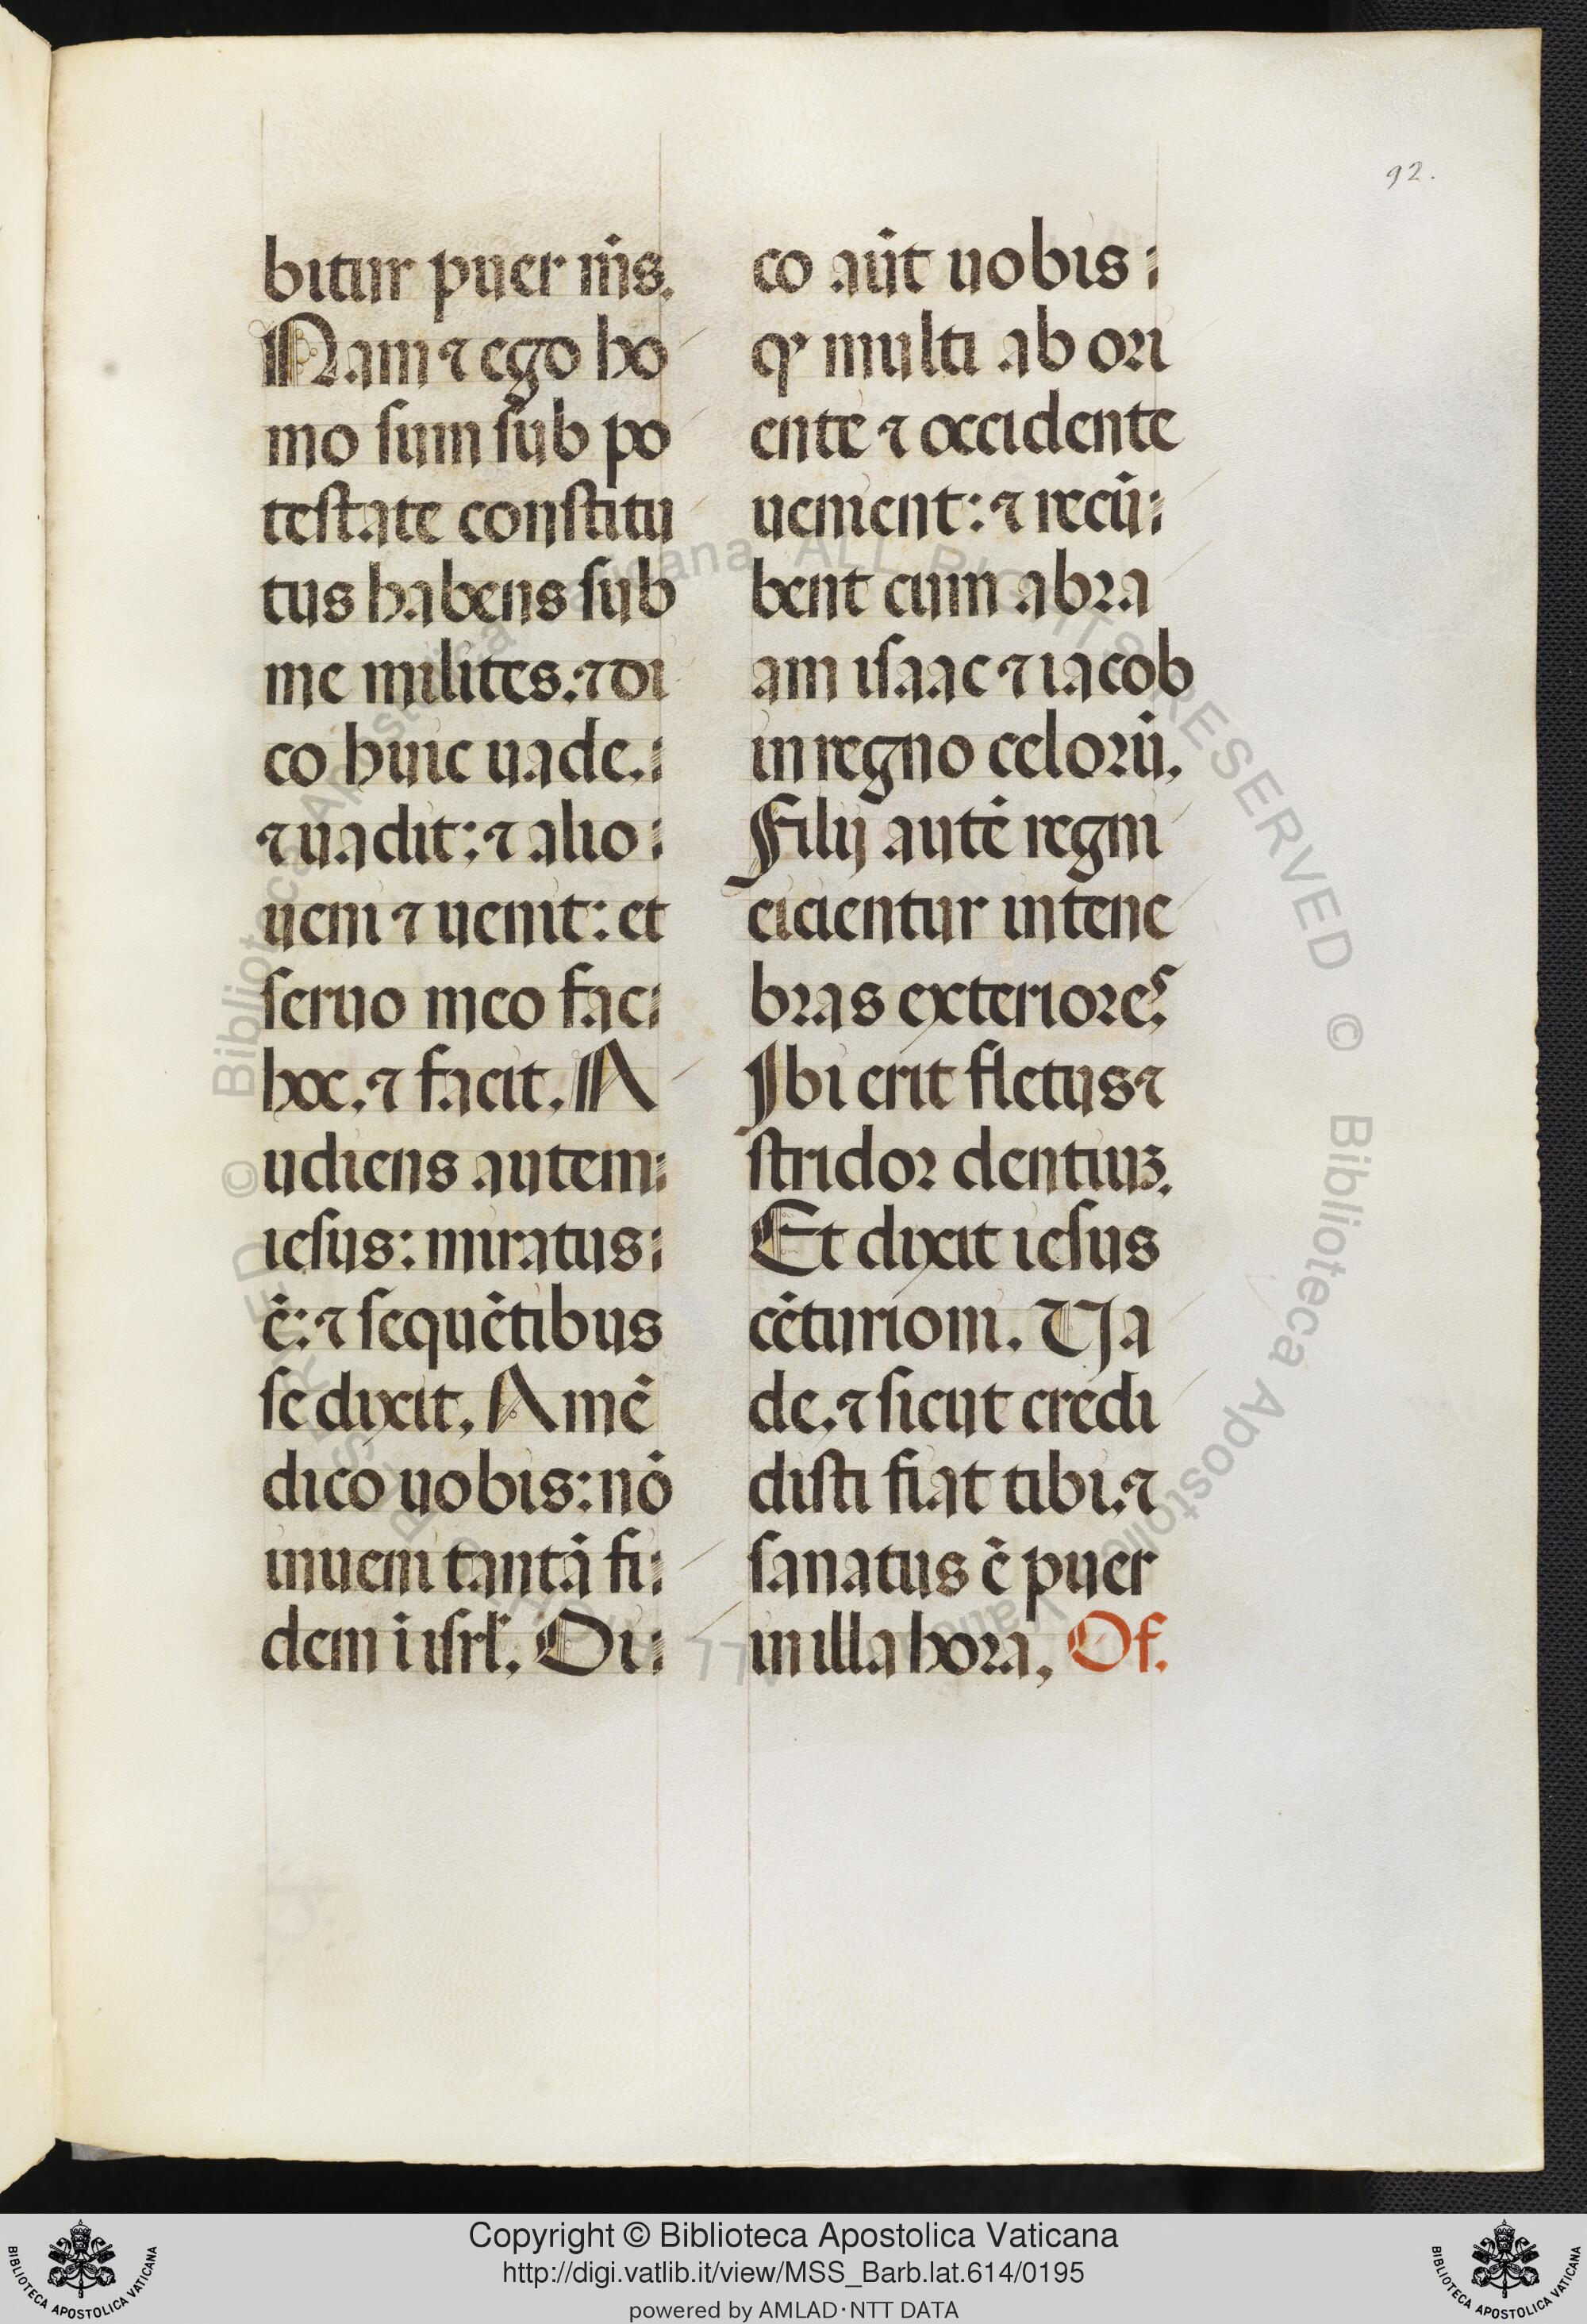 92.
bitur puer nr̄s.
Nam ⁊ ego ho
mo ſum ſub po
teſtate conſtitu
tus habens ſub
me milites.⁊ di
co huic uade.
⁊ uadit: ⁊ alio
ueni ⁊ uenit: et
ſeruo meo fac
hoc.⁊ facit. A
udiens autem
ieſus: miratus
ē: ⁊ ſequētibus
ſe dixit. Amē
dico uobis: nō
inueni tantā fi
dem ī iſrl. Di
co aūt uobis
qꝛ multi ab ori
ente ⁊ occidente
uenient: ⁊ recū
bent cum abra
am iſaac ⁊ iacob
in regno celorū.
Filij autē regni
eicientur in tene
bras exteriores
Ibi erit fletus ⁊
ſtridor dentiuꝫ.
Et dixit ieſus
cēturioni. Ua
de.⁊ ſicut credi
diſti fiat tibi.⁊
ſanatus ē puer
in illa hora. Of.
Copyright © Biblioteca Apostolica Vaticana
http://digi.vatlib.it/view/MSS_Barb.lat.614/0195
powered by AMLAD·NTT DATA
BIBLIOTECA APOSTOLICA VATICANA
BIBLIOTECA APOSTOLICA VATICANA